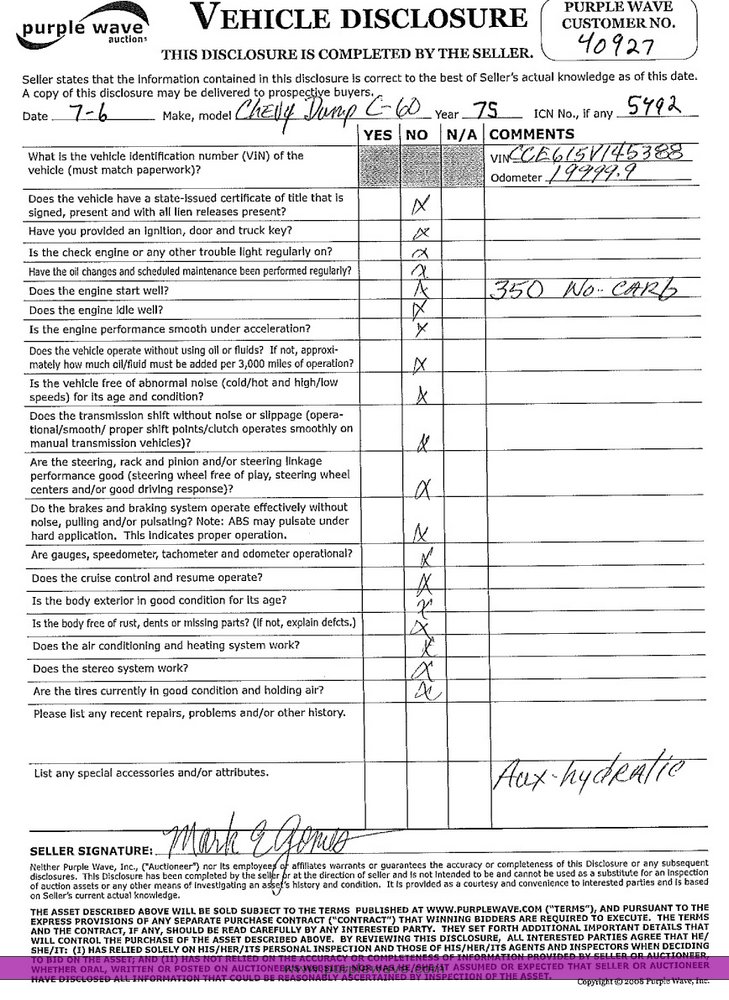 purple wave
auctions
VEHICLE DISCLOSURE
THIS DISCLOSURE IS COMPLETED BY THE SELLER.
PURPLE WAVE
CUSTOMER NO.
40927
Seller states that the information contained in this disclosure is correct to the best of Seller's actual knowledge as of this date.
A copy of this disclosure may be delivered to prospective buyers.
Date 7-6 Make, model Chevy Dump C-60 Year 75 ICN No., if any 5492
YES NO N/A COMMENTS
What is the vehicle identification number (VIN) of the VIN CCE615V145388
vehicle (must match paperwork)? Odometer 19999.9
Does the vehicle have a state-issued certificate of title that is
signed, present and with all lien releases present? X
Have you provided an ignition, door and truck key? X
Is the check engine or any other trouble light regularly on? X
Have the oil changes and scheduled maintenance been performed regularly? X
Does the engine start well? X 350 No-CARb
Does the engine idle well? X
Is the engine performance smooth under acceleration? X
Does the vehicle operate without using oil or fluids? If not, approxi-
mately how much oil/fluid must be added per 3,000 miles of operation? X
Is the vehicle free of abnormal noise (cold/hot and high/low
speeds) for its age and condition? X
Does the transmission shift without noise or slippage (opera-
tional/smooth/ proper shift points/clutch operates smoothly on
manual transmission vehicles)? X
Are the steering, rack and pinion and/or steering linkage
performance good (steering wheel free of play, steering wheel
centers and/or good driving response)? X
Do the brakes and braking system operate effectively without
noise, pulling and/or pulsating? Note: ABS may pulsate under
hard application. This indicates proper operation. X
Are gauges, speedometer, tachometer and odometer operational? X
Does the cruise control and resume operate? X
Is the body exterior in good condition for its age? X
Is the body free of rust, dents or missing parts? (if not, explain defcts.) X
Does the air conditioning and heating system work? X
Does the stereo system work? X
Are the tires currently in good condition and holding air? X
Please list any recent repairs, problems and/or other history.
List any special accessories and/or attributes. Aux-hydratic
SELLER SIGNATURE: Mark E Gomes
Neither Purple Wave, Inc., ("Auctioneer") nor its employees or affiliates warrants or guarantees the accuracy or completeness of this Disclosure or any subsequent
disclosures. This Disclosure has been completed by the seller or at the direction of seller and is not intended to be and cannot be used as a substitute for an inspection
of auction assets or any other means of investigating an asset's history and condition. It is provided as a courtesy and convenience to interested parties and is based
on Seller's current actual knowledge.
THE ASSET DESCRIBED ABOVE WILL BE SOLD SUBJECT TO THE TERMS PUBLISHED AT WWW.PURPLEWAVE.COM ("TERMS"), AND PURSUANT TO THE
EXPRESS PROVISIONS OF ANY SEPARATE PURCHASE CONTRACT ("CONTRACT") THAT WINNING BIDDERS ARE REQUIRED TO EXECUTE. THE TERMS
AND THE CONTRACT, IF ANY, SHOULD BE READ CAREFULLY BY ANY INTERESTED PARTY. THEY SET FORTH ADDITIONAL IMPORTANT DETAILS THAT
WILL CONTROL THE PURCHASE OF THE ASSET DESCRIBED ABOVE. BY REVIEWING THIS DISCLOSURE, ALL INTERESTED PARTIES AGREE THAT HE/
SHE/IT: (I) HAS RELIED SOLELY ON HIS/HER/ITS PERSONAL INSPECTION AND THOSE OF HIS/HER/ITS AGENTS AND INSPECTORS WHEN DECIDING
TO BID ON THE ASSET; AND (II) HAS NOT RELIED ON THE ACCURACY OR COMPLETENESS OF INFORMATION PROVIDED BY SELLER OR AUCTIONEER,
WHETHER ORAL, WRITTEN OR POSTED ON AUCTIONEER'S ASSUMED OR EXPECTED THAT SELLER OR AUCTIONEER
HAVE DISCLOSED ALL INFORMATION THAT COULD BE REASONABLY ASCERTAINED BY INSPECTION OF THE ASSET.
Copyright ©2008 Purple Wave, Inc.